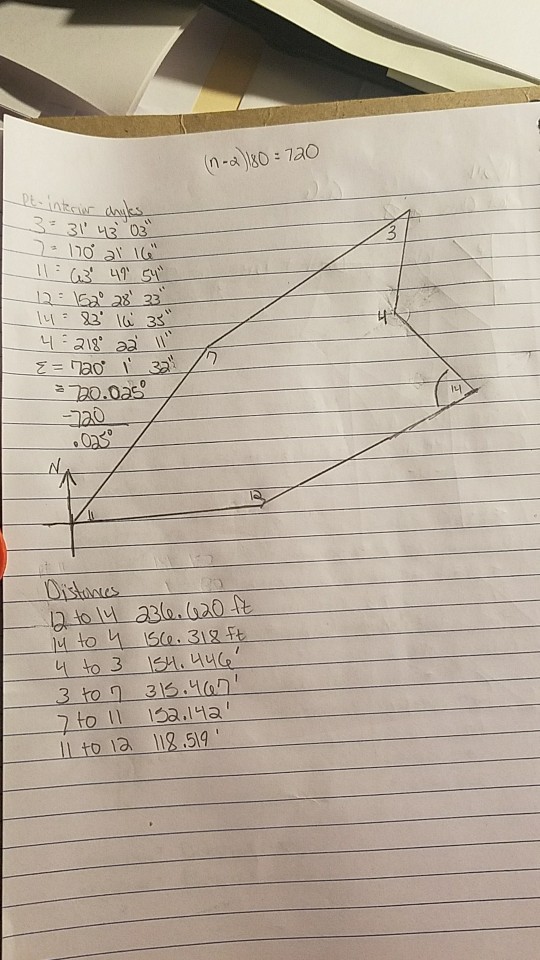 (n-2)180 = 720
pt - interior angles
3 = 31' 43' 03"
7 = 170° 21' 16"
11 = 63° 49' 54"
12 = 152° 28' 33"
14 = 83° 16' 35"
4 = 218° 22' 11"
Σ = 720° 1' 32"
= 720.025°
-720
.025°
N
3
4
7
14
12
11
Distances
12 to 14 236.620 ft
14 to 4 156.318 ft
4 to 3 154.446'
3 to 7 315.467'
7 to 11 152.142'
11 to 12 118.519'